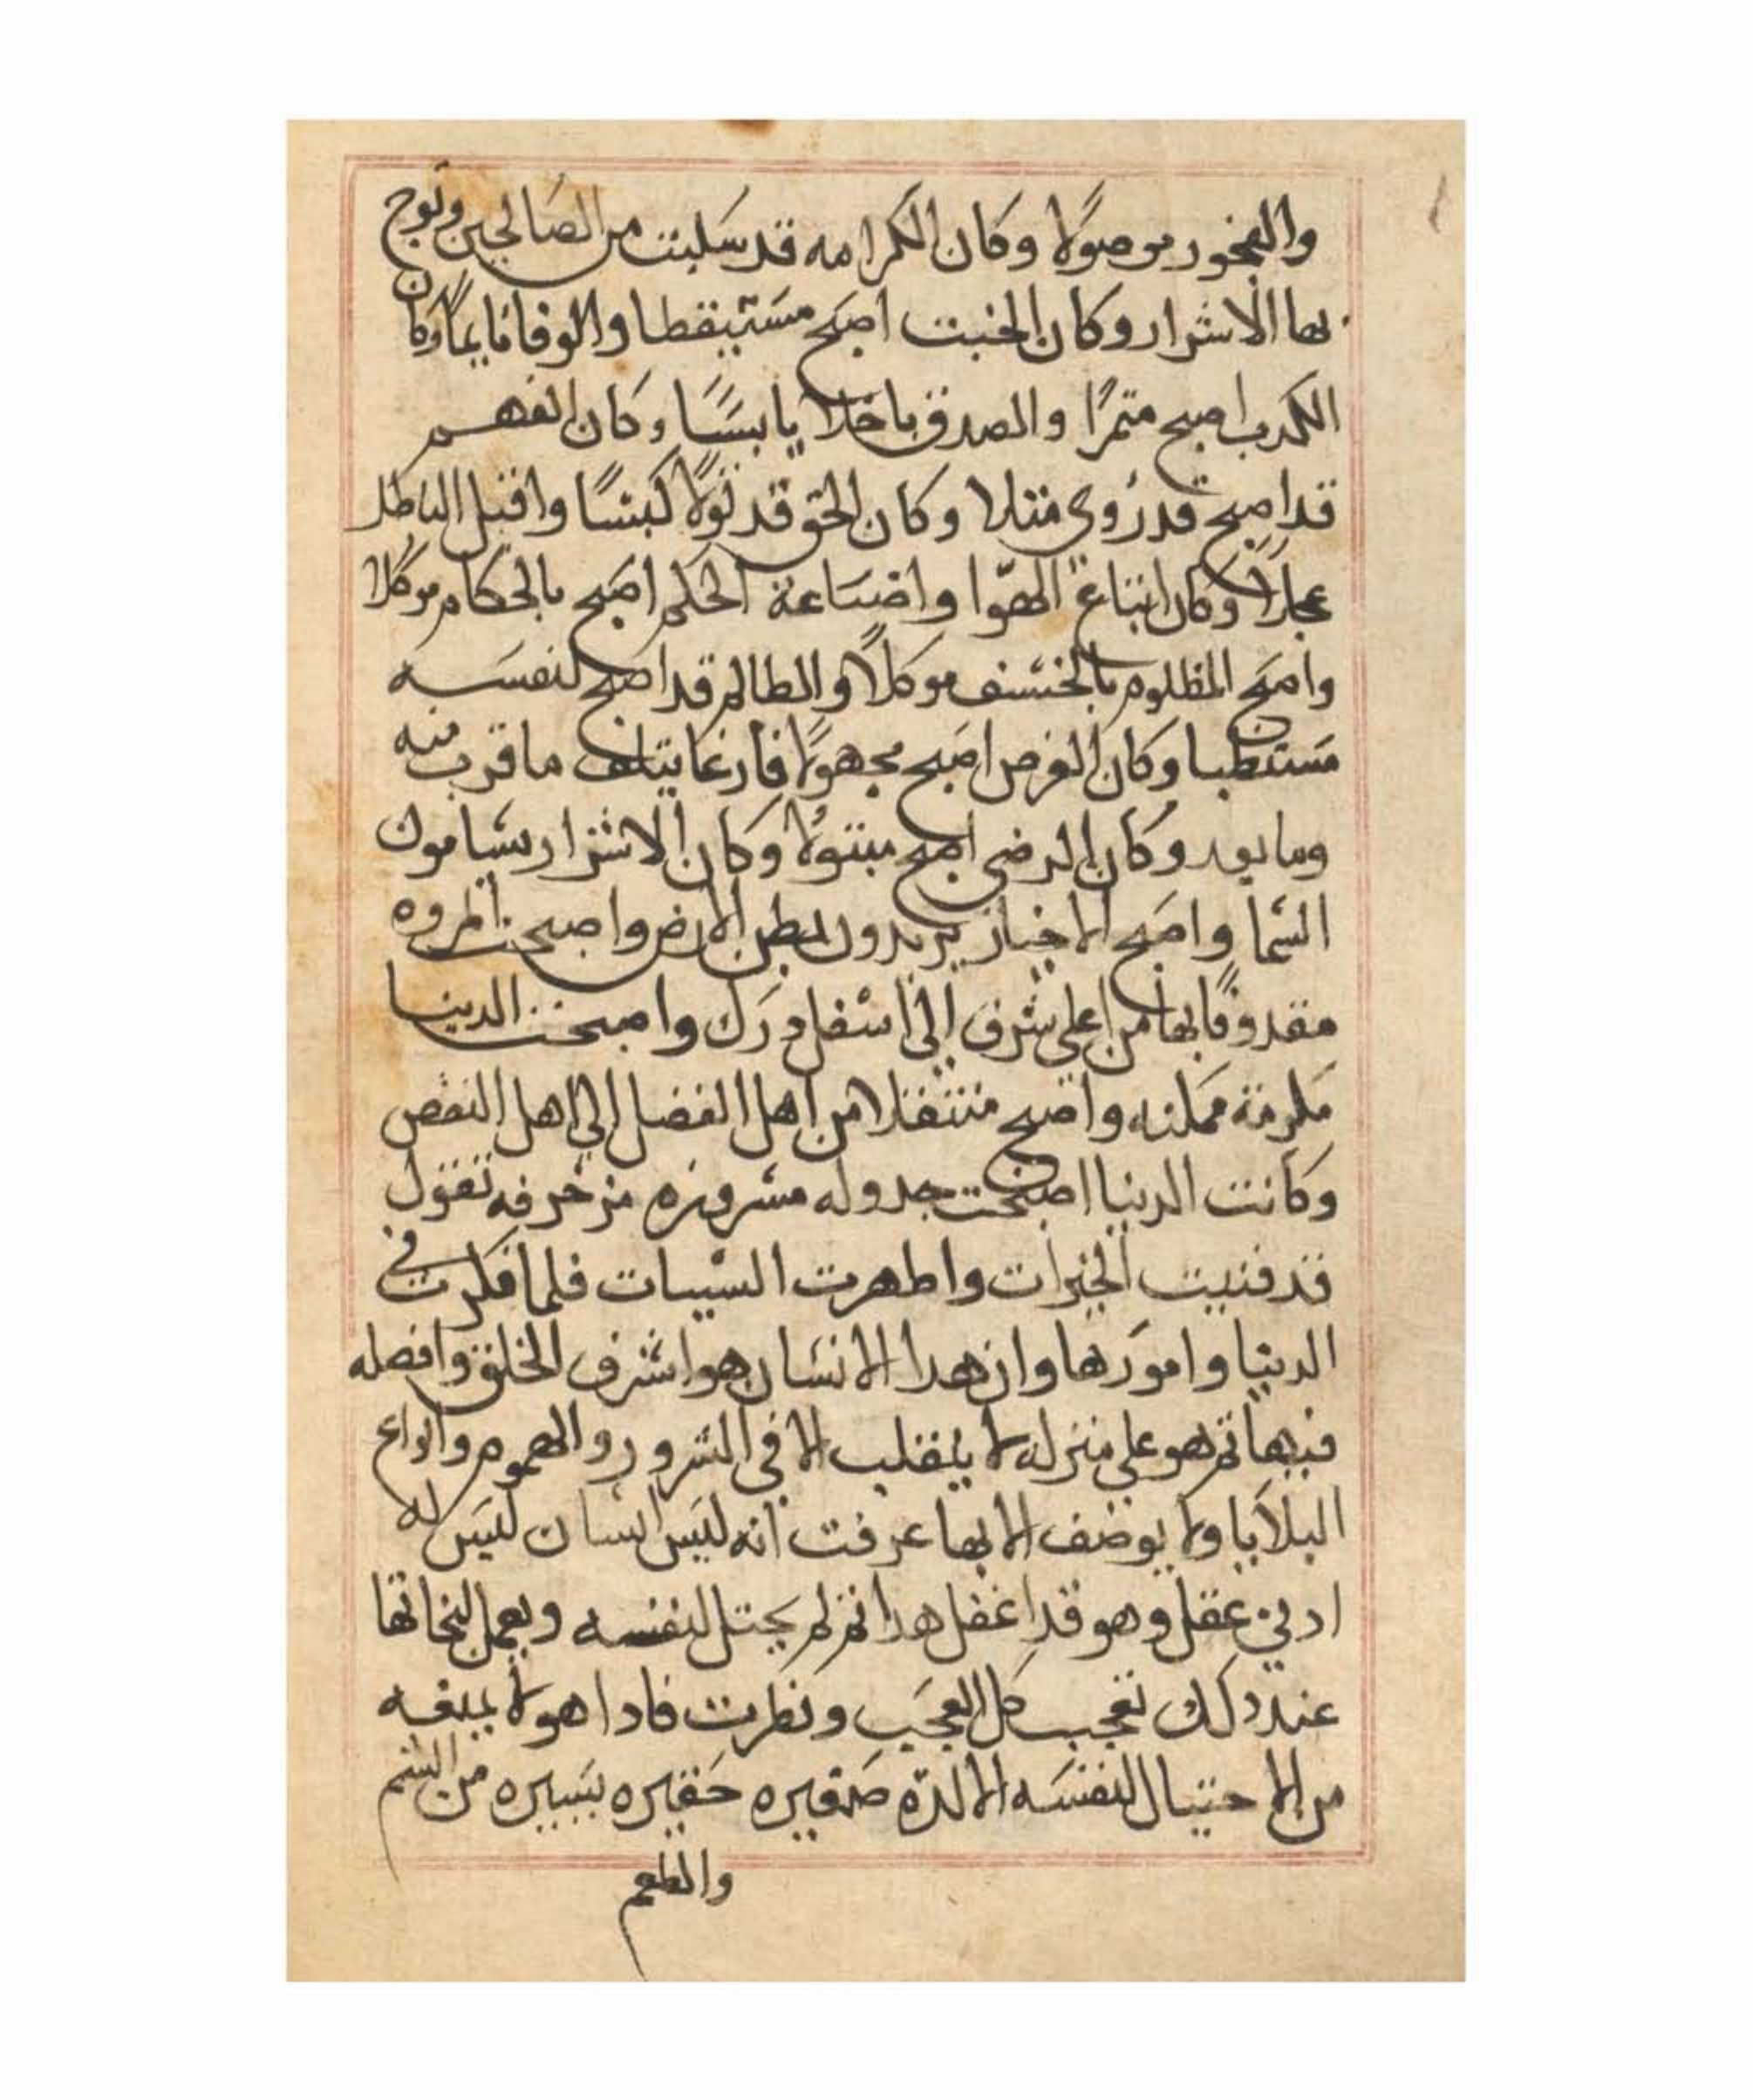 والفجور موصولا وكان الكرامه قد سلبت من الصالحين وتوج
بها الاشرار وكان الخبت اصبح مستيقطا والوفا نايما وكان
الكدب اصبح متمرًا والصدق باخلا يابسًا وكان الفهم
قد اصبح قد زوى متلا وكان الحق قد تولا كبشا واقبل الباطل
وكان اتباع الهوا واضاعة الحكم اصبح بالحكام موكلا
واصبح المظلوم بالخسف موكلاً والطالم قد اصبح لنفسه
مستطبا وكان الغرص اصبح مجهولا ما قرب منه
وما بعد وكان الرضى اصبح مبتولا وكان الاشرار يسامون
السما واصبح الاخيار يريدون بطن الارض واصبحت المروه
مقدوفًا بها من اعلي شرف الي اسفل درك واصبحت الدينا
مكرمة ممكنه واصبح منتقلا من اهل الفضل الي اهل النقص
وكانت الدنيا اصبحت جدوله مسروره مزخرفه تقول
قد فنيت الخيرات واطهرت السيات فلما فكرت في
الدينا وامورها وان هدا الانسان هو اشرف الخلق وافصله
فيها تم هو علي منزله لا ينقلب الا في الشرور والهموم وانواع
البلايا ولا يوصف الا بها عرفت انه ليس انسان ليس له
ادني عقل وهو قد اغفل هدا تم لم يحتل لنفسه ويعمل لنجاتها
عند دلك تعجب كل العجب ونطرت فادا هو لا يمنعه
من الاحتيال لنفسه الا لدّه صغيره حقيره يسيره من الشم
والطعم